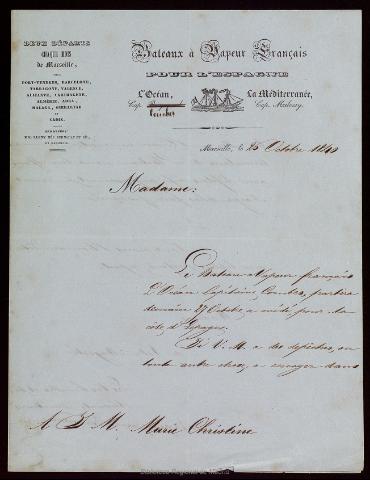 DEUX DÉPARTS
de Marseille,
PORT-VENDRES, BARCELONNE,
TARRAGONE, VALENCE,
ALICANTE, CARTHAGÈNE,
ALMÉRIE, ADRA,
MALAGA, GIBRALTAR
ET
CADIX.
Bateaux à Vapeur Français
POUR L'ESPAGNE
L'Océan,
Cap.
Combes
La Méditerranée,
Cap.
Marseille, le 25 Octobre 1840
Madame:
Le Bateau à Vapeur français
L'Océan Capitaine, Combes, partira
demain 27 Octobre a midi, pour la
côte d'Espagne.
Si V. M. a des depêches, ou
toute autre chose, a envoyer dans
A S. M. Marie Christine